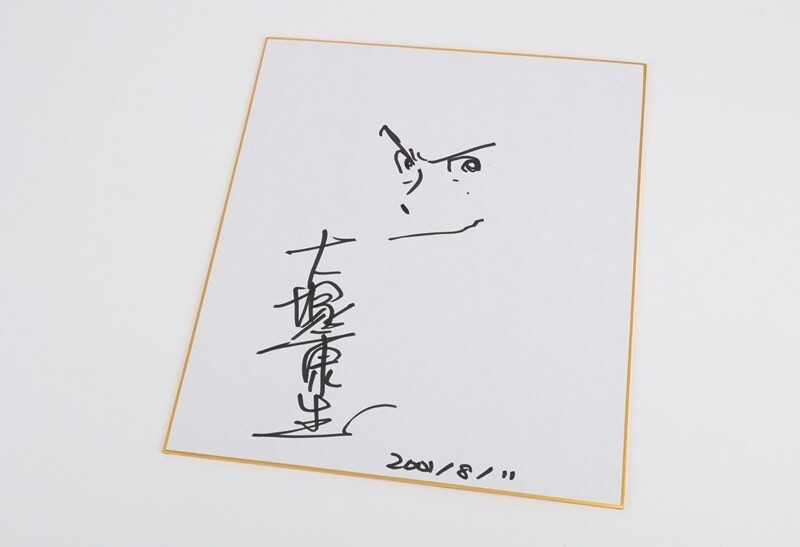 大塚康生
2001/8/11